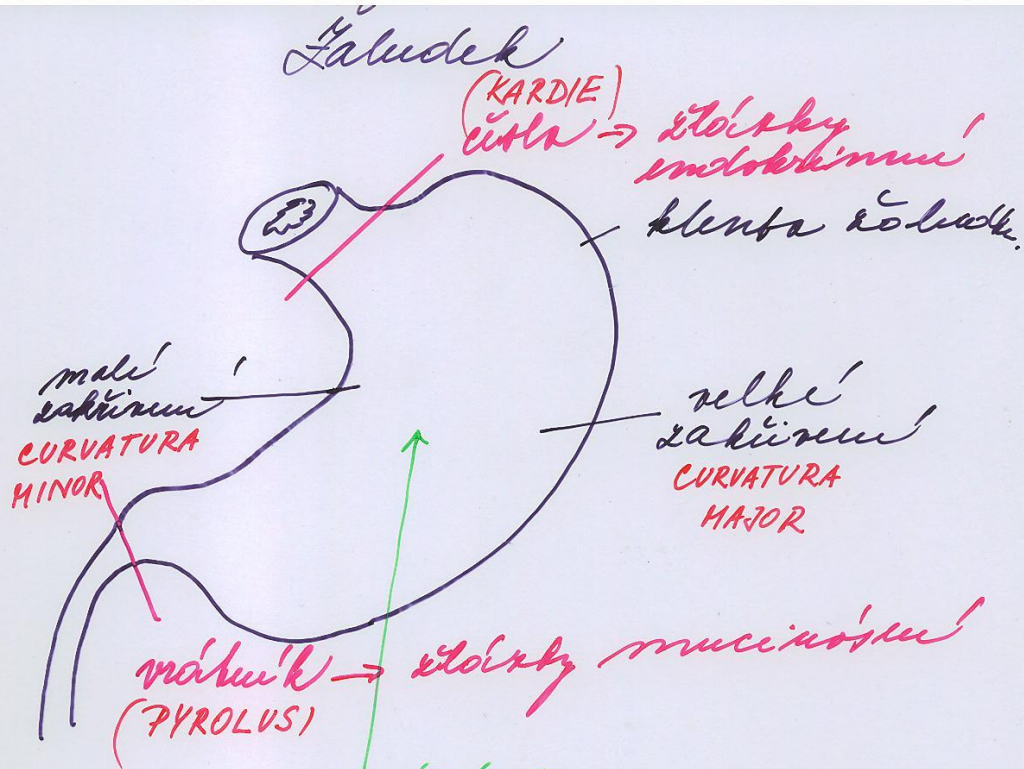 Žaludek
(KARDIE)
→ žlázky
endokrinní
klenba žaludk.
malé
zakřivení
CURVATURA
MINOR
velké
zakřivení
CURVATURA
MAJOR
vrátník → žlázky mucinózní
(PYROLUS)